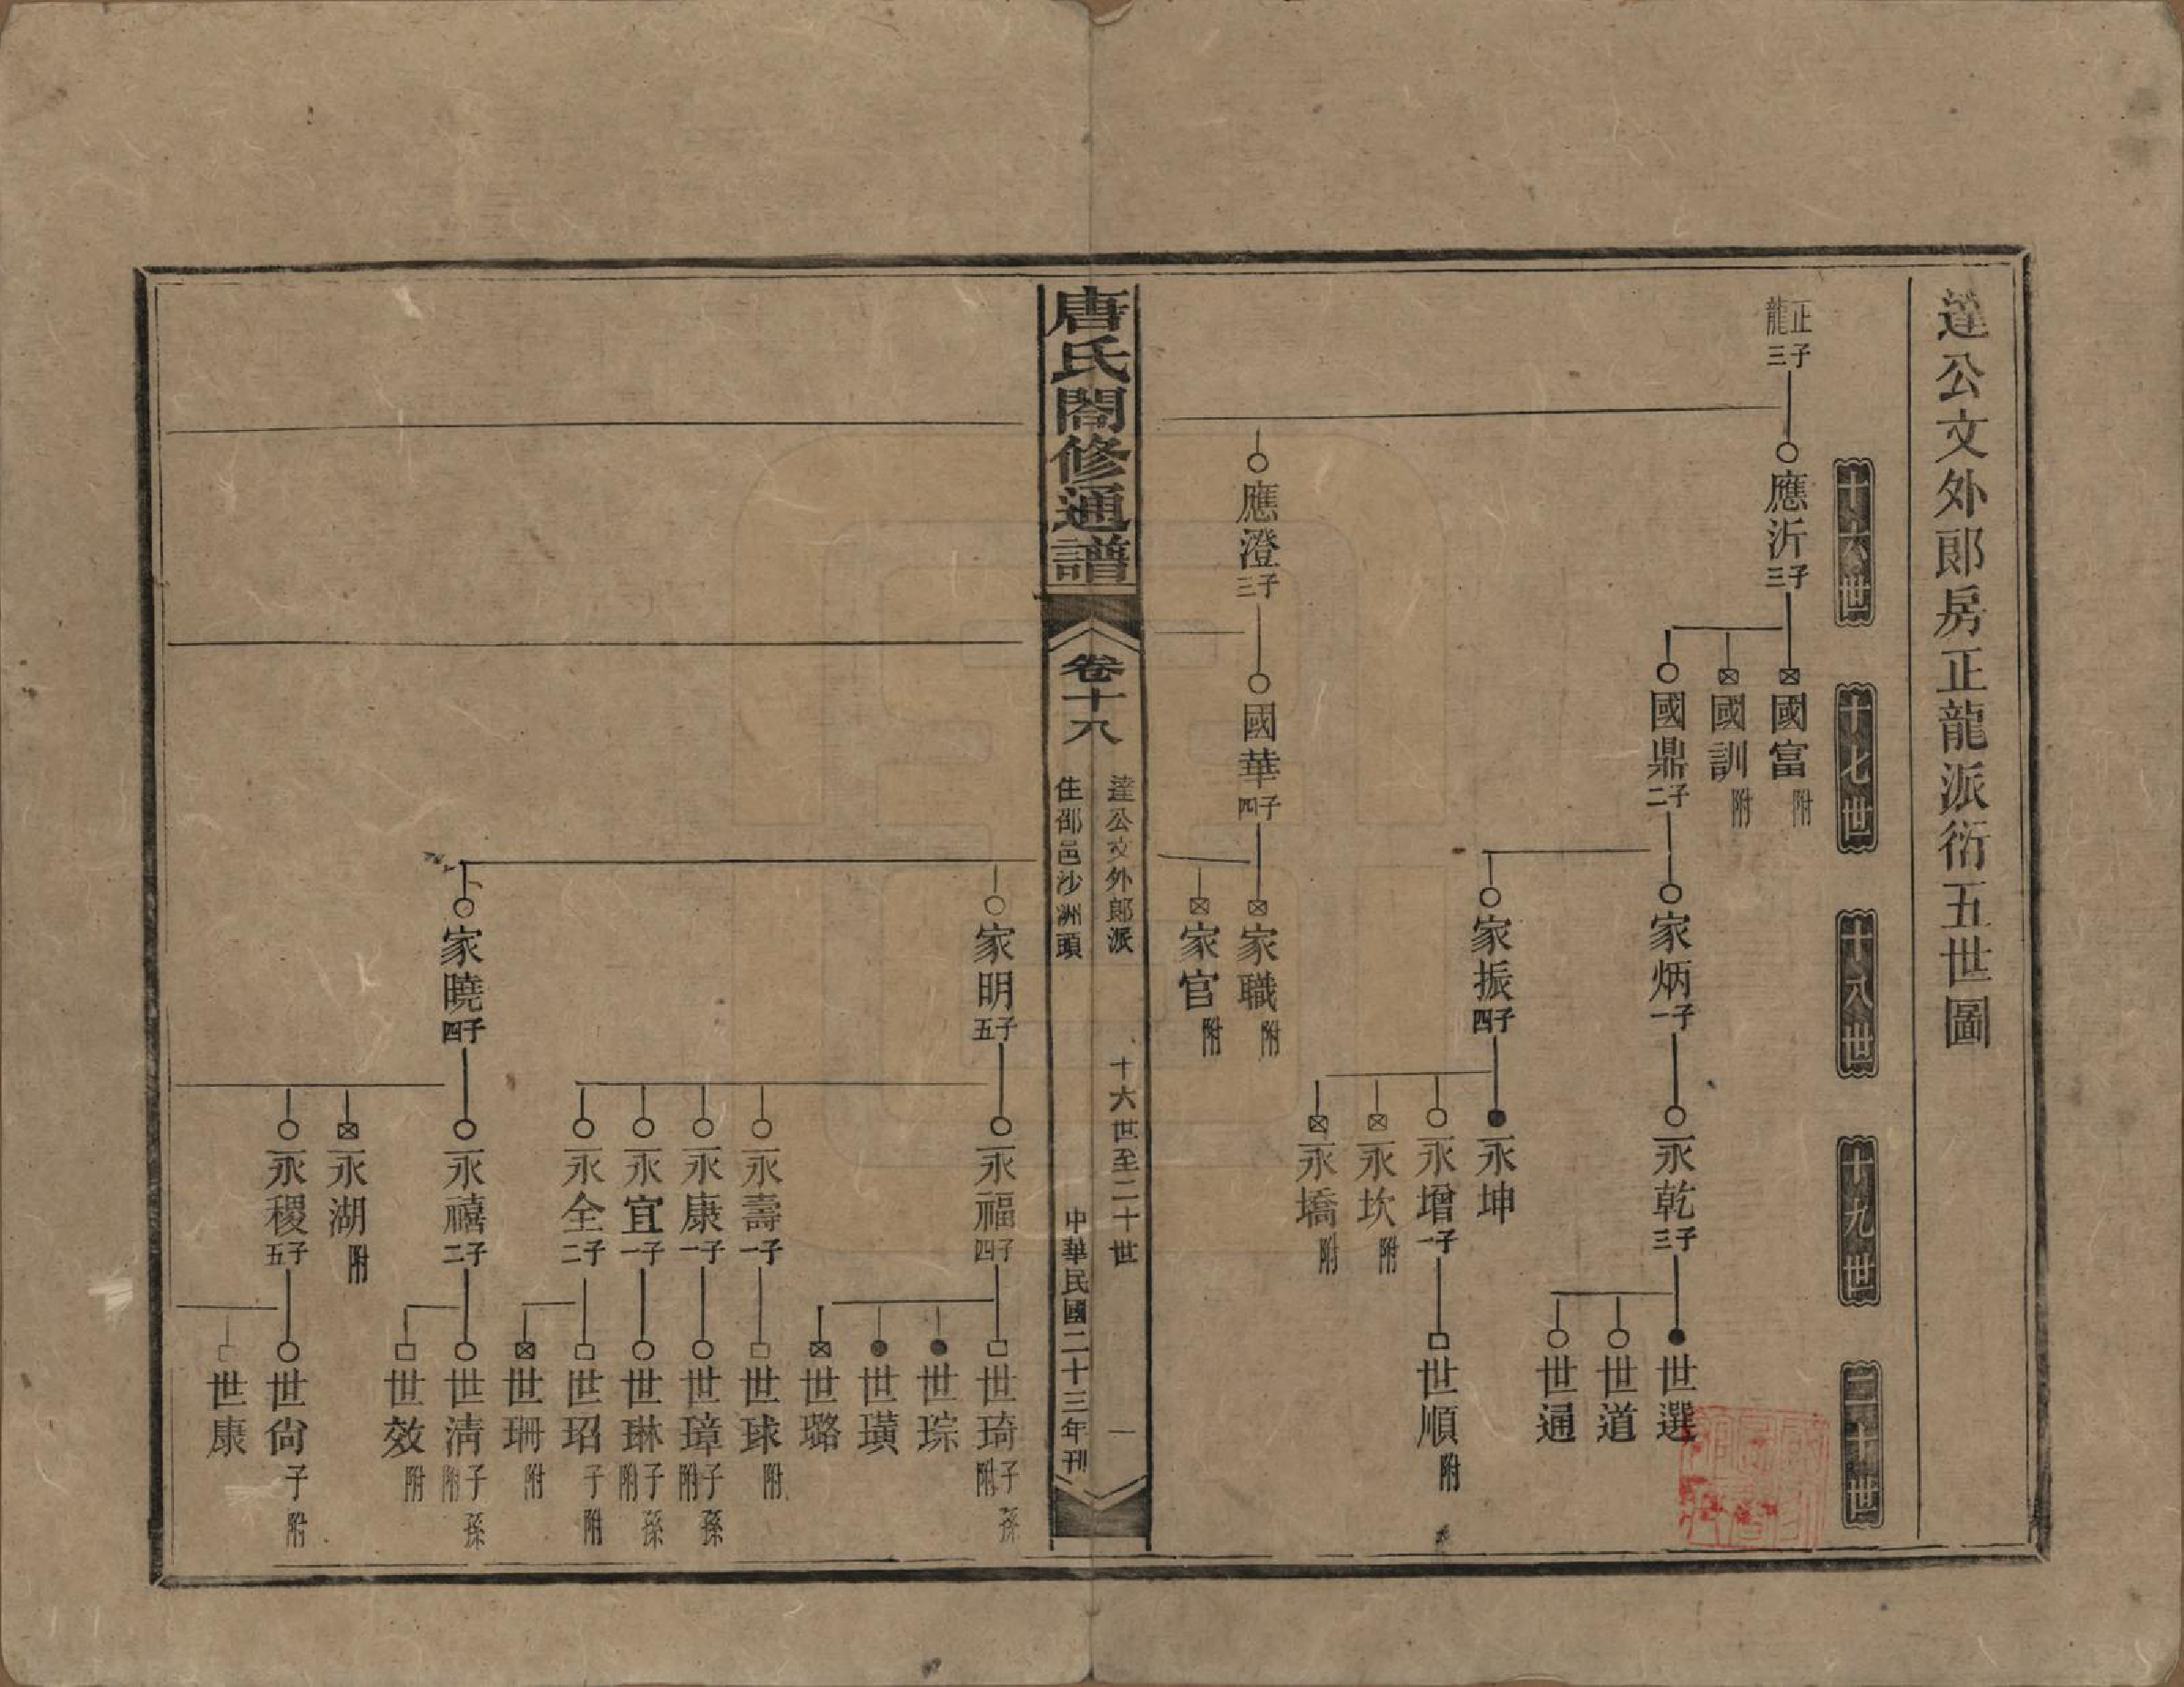 達公文外郎房正龍派衍五世圖
十六世
十七世
十八世
十九世
二十世
正龍三子
應沂三子
國富附
國訓附
國鼎二子
家炳一子
永乾三子
世選
世道
世通
家振四子
永坤
永增一子
世順附
永坎附
永墧附
應澄三子
國華四子
家職附
家官附
唐氏閤修通譜
卷十八
達公文外郎派
住邵邑沙洲頭
十六世至二十世
一
中華民國二十三年刊
家明五子
永福四子
世琦子孫附
世琮
世璜
世璐
永壽一子
世球附
永康一子
世璋子孫附
永宜一子
世琳子孫附
永全二子
世玿子附
世珊附
家曉四子
永禧二子
世清子孫附
世效附
永湖附
永稷五子
世尙子附
世康